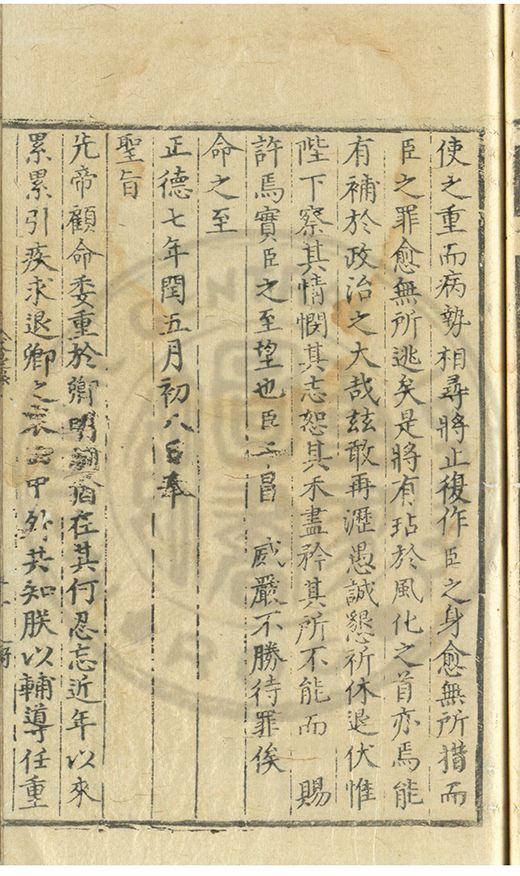 使之重而病勢相尋將止復作臣之身愈無所措而
臣之罪愈無所逃矣是將有玷於風化之首亦焉能
有補於政治之大哉玆敢再瀝愚誠懇祈休退伏惟
陛下察其情憫其志恕其未盡矜其所不能而 賜
許焉實臣之至望也臣 冒 威嚴不勝待罪俟
命之至
正德七年閏五月初八日奉
聖旨
先帝顧命委重於卿明 猶在其何忍忘近年以來
累累引疾求退卿之衷 中外共知朕以輔導任重